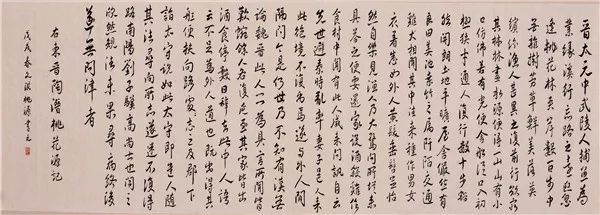 晉太元中武陵人捕魚為
業緣溪行忘路之遠近忽
逢桃花林夾岸數百步中
無雜樹芳草鮮美落英
繽紛漁人甚異之復前行欲窮
其林林盡水源便得一山山有小
口仿佛若有光便舍船從口入初
極狹才通人復行數十步豁
然開朗土地平曠屋舍儼然有
良田美池桑竹之屬阡陌交通
雞犬相聞其中往來種作男女
衣著悉如外人黃髮垂髫並怡
然自樂見漁人乃大驚問所從來
具答之便要還家設酒殺雞作
食村中聞有此人咸來問訊自云
先世避秦時亂率妻子邑人來
此絕境不復出焉遂與外人間
隔問今是何世乃不知有漢無
論魏晉此人一一為具言所聞皆
歎惋餘人各復延至其家皆出
酒食停數日辭去此中人語
云不足為外人道也既出得其
船便扶向路處處志之及郡下
詣太守說如此太守即遣人隨
其往尋向所志遂迷不復得
路南陽劉子驥高尚士也聞之
欣然規往未果尋病終後
遂無問津者
右東晉陶潛桃花源記
戊戌春